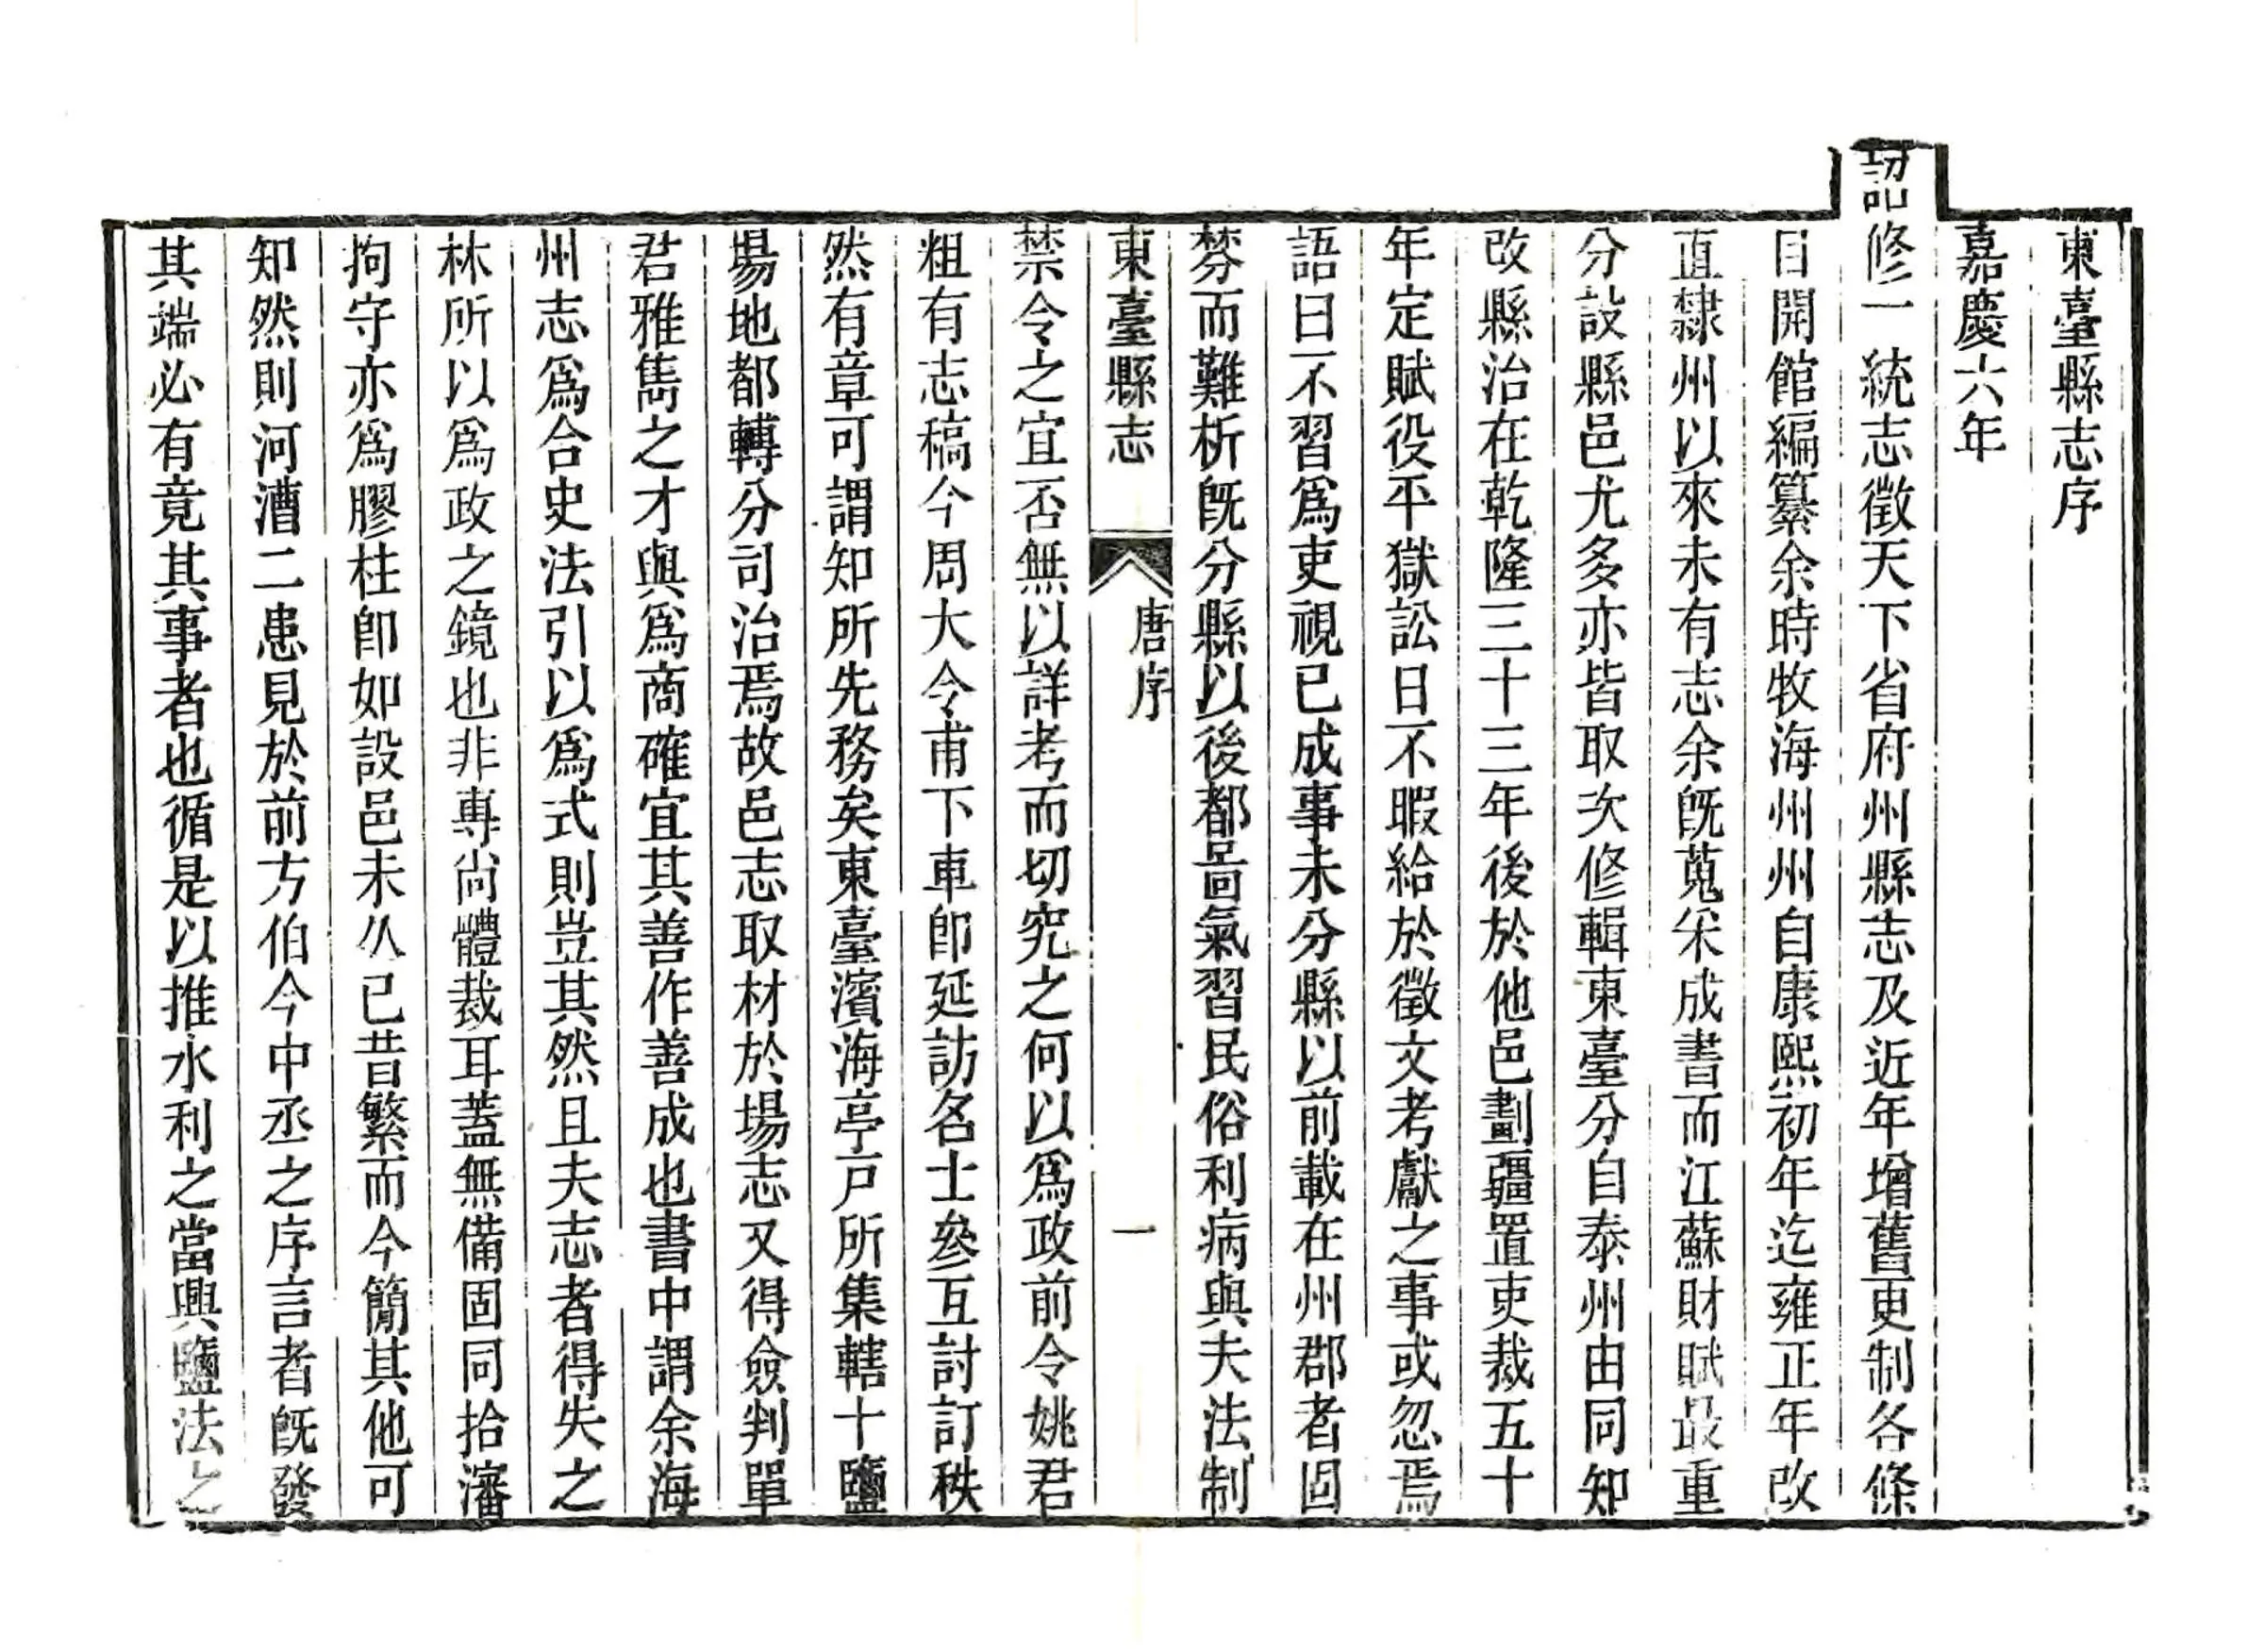 東臺縣志序
嘉慶六年
詔修一統志徵天下省府州縣志及近年增舊更制各條
目開館編纂余時牧海州州自康熙初年迄雍正年改
直隸州以來未有志余旣蒐采成書而江蘇財賦最重
分設縣邑尤多亦皆取次修輯東臺分自泰州由同知
改縣治在乾隆三十三年後於他邑劃疆置吏裁五十
年定賦役平獄訟日不暇給於徵文考獻之事或忽焉
語曰不習爲吏視已成事未分縣以前載在州郡者固
棼而難析旣分縣以後都啚氣習民俗利病與夫法制
東臺縣志 唐序 一
禁令之宜否無以詳考而切究之何以爲政前令姚君
粗有志稿今周大令甫下車卽延訪名士叅互討訂秩
然有章可謂知所先務矣東臺濱海亭戸所集轄十鹽
場地都轉分司治焉故邑志取材於場志又得僉判單
君雅雋之才與爲商確宜其善作善成也書中謂余海
州志爲合史法引以爲式則豈其然且夫志者得失之
林所以爲政之鏡也非專尚體裁耳蓋無備固同拾瀋
拘守亦爲膠柱卽如設邑未久已昔繁而今簡其他可
知然則河漕二患見於前方伯今中丞之序言者旣發
其端必有竟其事者也循是以推水利之當興鹽法之